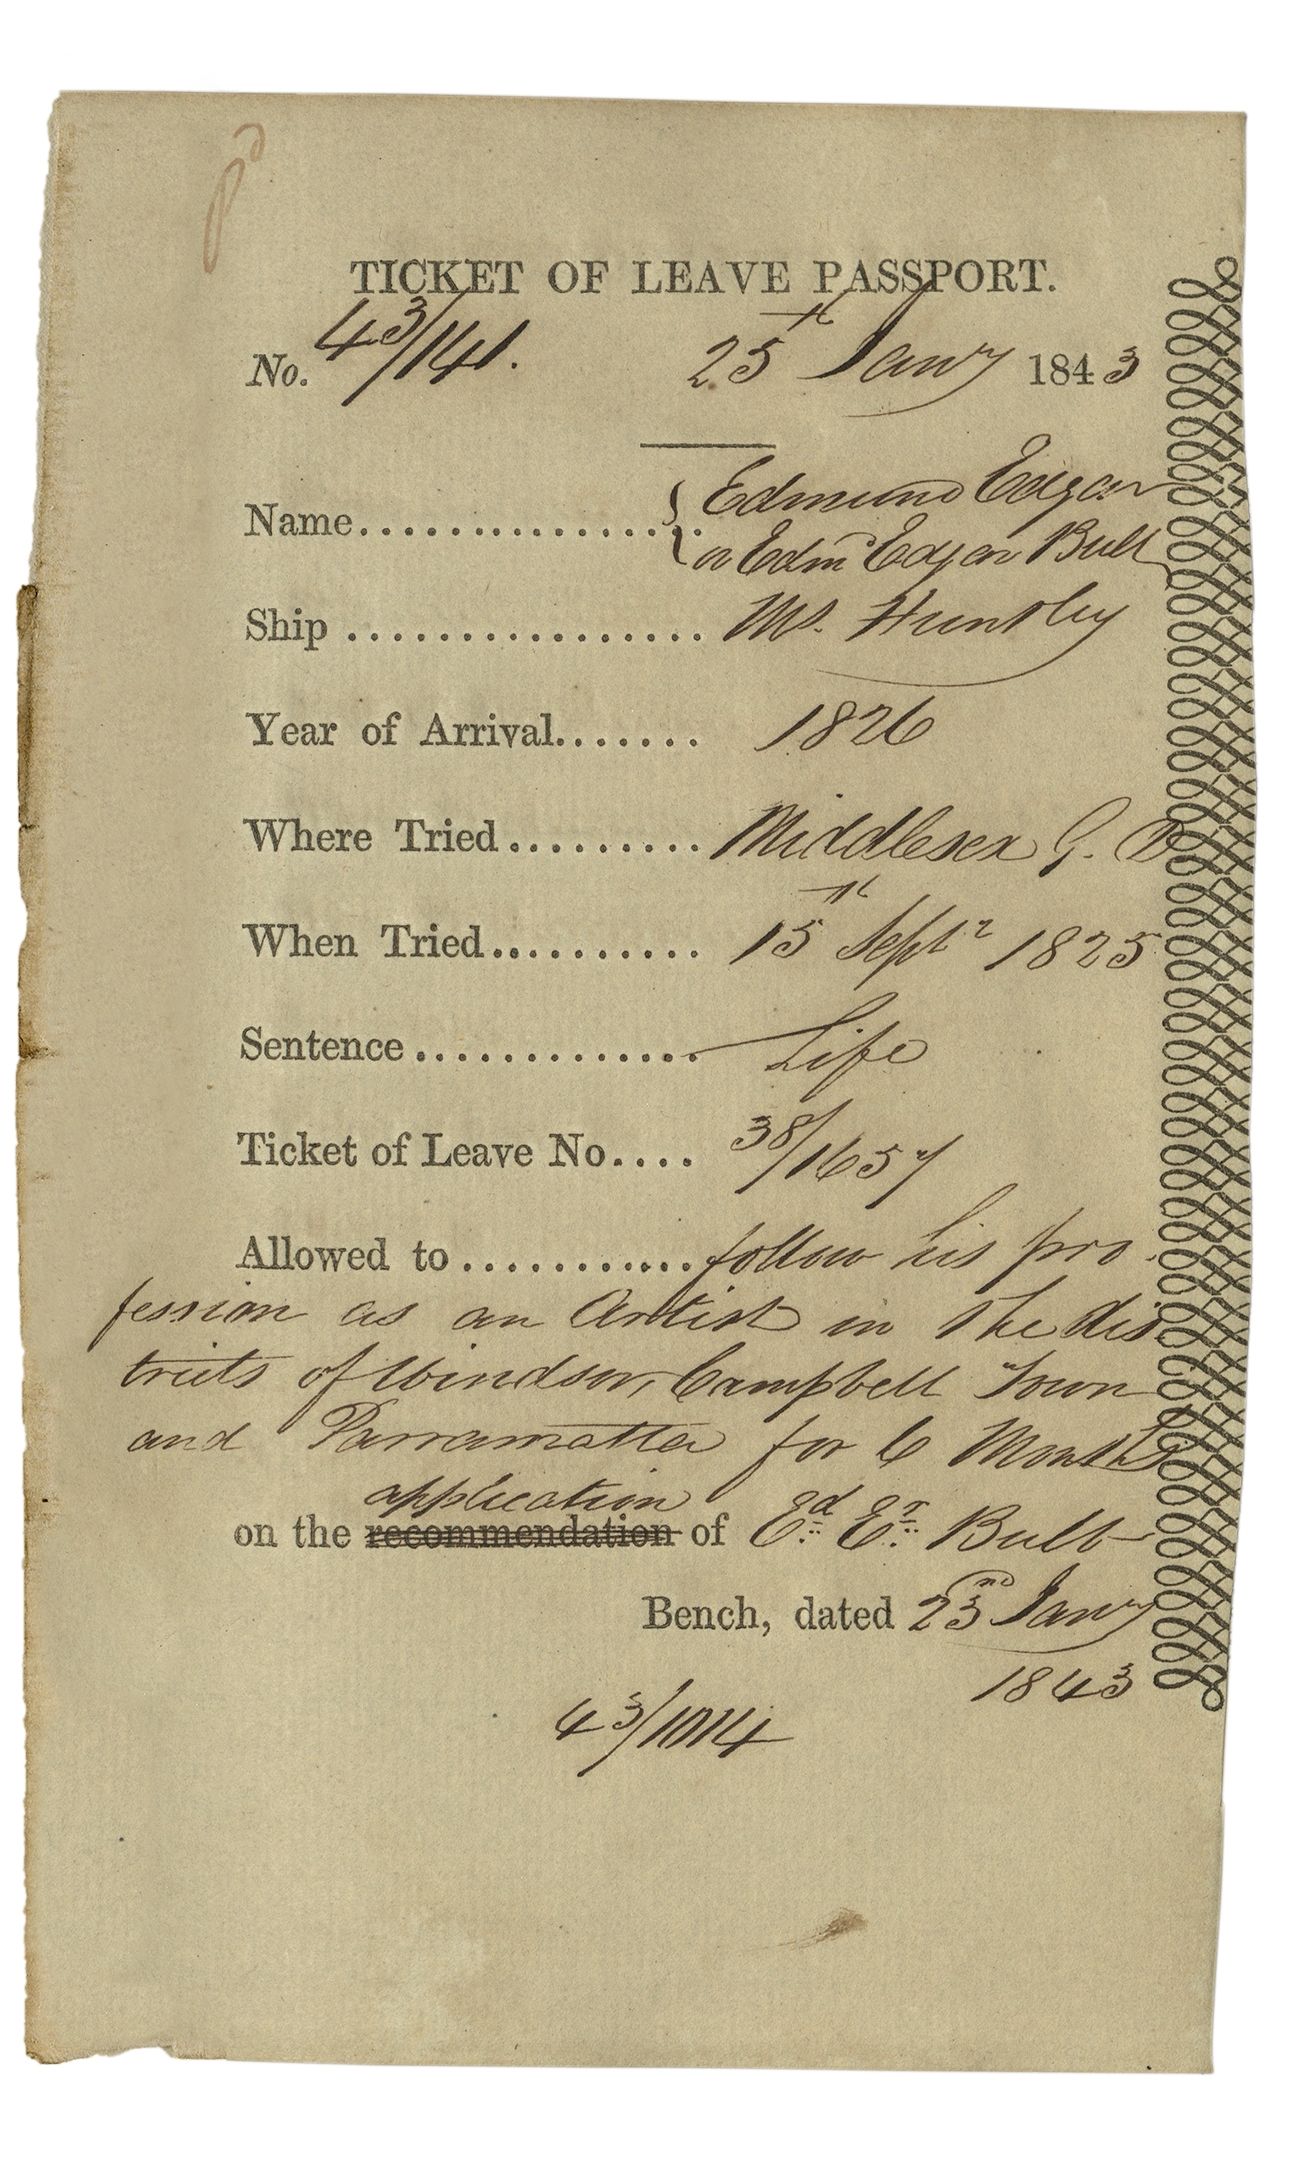 pd
TICKET OF LEAVE PASSPORT.
No. 43/141. 25th Jany 1843
Edmund Edgar
Name................
or Edmd Edgar Bult
Ship ................. Ms. Huntley
Year of Arrival....... 1826
Where Tried......... Middlesex G. D.
When Tried.......... 15th Septr 1825
Sentence............. Life
Ticket of Leave No.... 38/1657
Allowed to............ follow his pro-
fession as an Artist in the dis-
tricts of Windsor, Campbell Town
and Parramatta for 6 Months
application
on the recommendation of Ed. Er. Bult
Bench, dated 23rd Jany
1843
43/1014